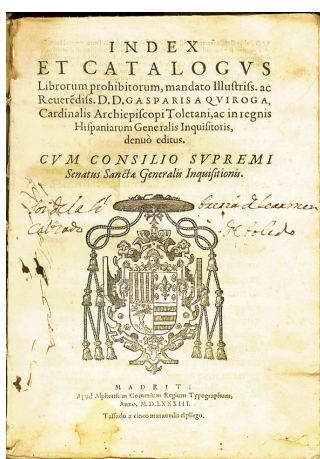 INDEX
ET CATALOGVS
Librorum prohibitorum, mandato Illustriss. ac
Reuerēdiss. D.D. GASPARIS A QVIROGA,
Cardinalis Archiepiscopi Toletani, ac in regnis
Hispaniarum Generalis Inquisitoris,
denuò editus.
CVM CONSILIO SVPREMI
Senatus Sanctæ Generalis Inquisitionis.
de toledo
MADRITI
Apud Alphonsum Gomezium Regium Typographum,
Anno, M.D.LXXXIII.
Tassado a cinco marauedis el pliego.